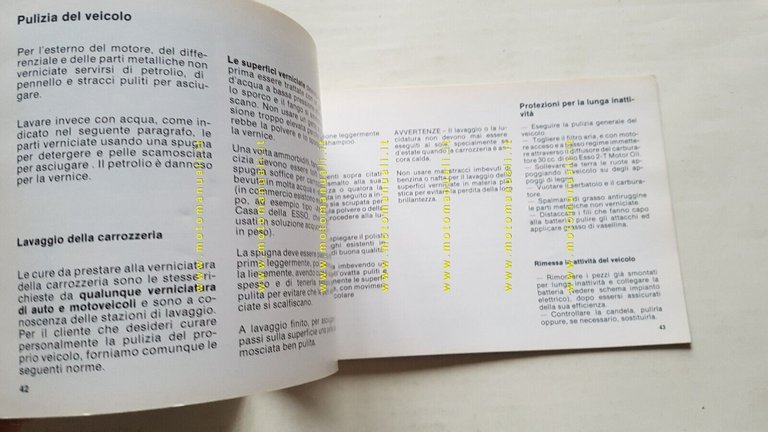 Pulizia del veicolo
Per l'esterno del motore, del diffe-
renziale e delle parti metalliche non
verniciate servirsi di petrolio, di
pennello e stracci puliti per asciu-
gare.
Lavare invece con acqua, come in-
dicato nel seguente paragrafo, le
parti verniciate usando una spugna
per detergere e pelle scamosciata
per asciugare. Il petrolio è dannoso
per la vernice.
Lavaggio della carrozzeria
Le cure da prestare alla verniciatura
della carrozzeria sono le stesse ri-
chieste da qualunque verniciatura
di auto e motoveicoli e sono a co-
noscenza delle stazioni di lavaggio.
Per il cliente che desideri curare
personalmente la pulizia del pro-
prio veicolo, forniamo comunque le
seguenti norme.
42
Le superfici verniciate
prima essere trattate con
d'acqua a bassa pressione
lo sporco e il fango
scano. Non usare un getto
sione troppo elevata
rebbe la polvere e lo
la vernice.
Una volta ammorbidito
cizia devono essere
spugna soffice per car
bevuta in molta acqua
(in commercio esistono
po, ad esempio tipo
Casa della ESSO,
usati in soluzione acquosa
in peso).
La spugna deve essere
prima leggermente, poi
la lievemente, avendo
spesso e di tenerla
pulita per evitare che
ciate si scalfiscano.
A lavaggio finito, per asciugare
passi sulla superficie una
mosciata ben pulita.
zione leggermente
shampoo.
sopra citati
smalto alla sua
o qualora la
sia sciupata per
la polvere o della
procedere alla lu-
impiegare il polish
esistenti in
di buona qualità.
imbevendo
ovatta puliti
mente le superfici
con movimen-
colare
AVVERTENZE - Il lavaggio o la lu-
cidatura non devono mai essere
eseguiti al sole specialmente se
d'estate quando la carrozzeria è an-
cora calda.
Non usare mai stracci imbevuti di
benzina o nafta per il lavaggio delle
superfici verniciate in materia pla-
stica per evitare la perdita della loro
brillantezza.
Protezioni per la lunga inatti-
vità
— Eseguire la pulizia generale del
veicolo.
— Togliere il filtro aria, e con moto-
re acceso e a basso regime immette-
re attraverso il diffusore del carbura-
tore 30 cc. di olio Esso 2-T Motor Oil.
— Sollevare da terra le ruote ap-
poggiando il veicolo su degli ap-
poggi di legno.
— Vuotare il serbatoio e il carbura-
tore.
— Spalmare di grasso antiruggine
le parti metalliche non verniciate.
— Distaccare i fili che fanno capo
alla batteria, pulire gli attacchi ed
applicare grasso di vasellina.
Rimessa in attività del veicolo
— Rimontare i pezzi già smontati
per lunga inattività e collegare la
batteria (vedere schema impianto
elettrico), dopo essersi assicurati
della sua efficienza.
— Controllare la candela, pulirla
oppure, se necessario, sostituirla.
43
www.motomanuali.it
www.motomanuali.it
www.motomanuali.it
www.motomanuali.it
www.motomanuali.it
www.motomanuali.it
www.motomanuali.it